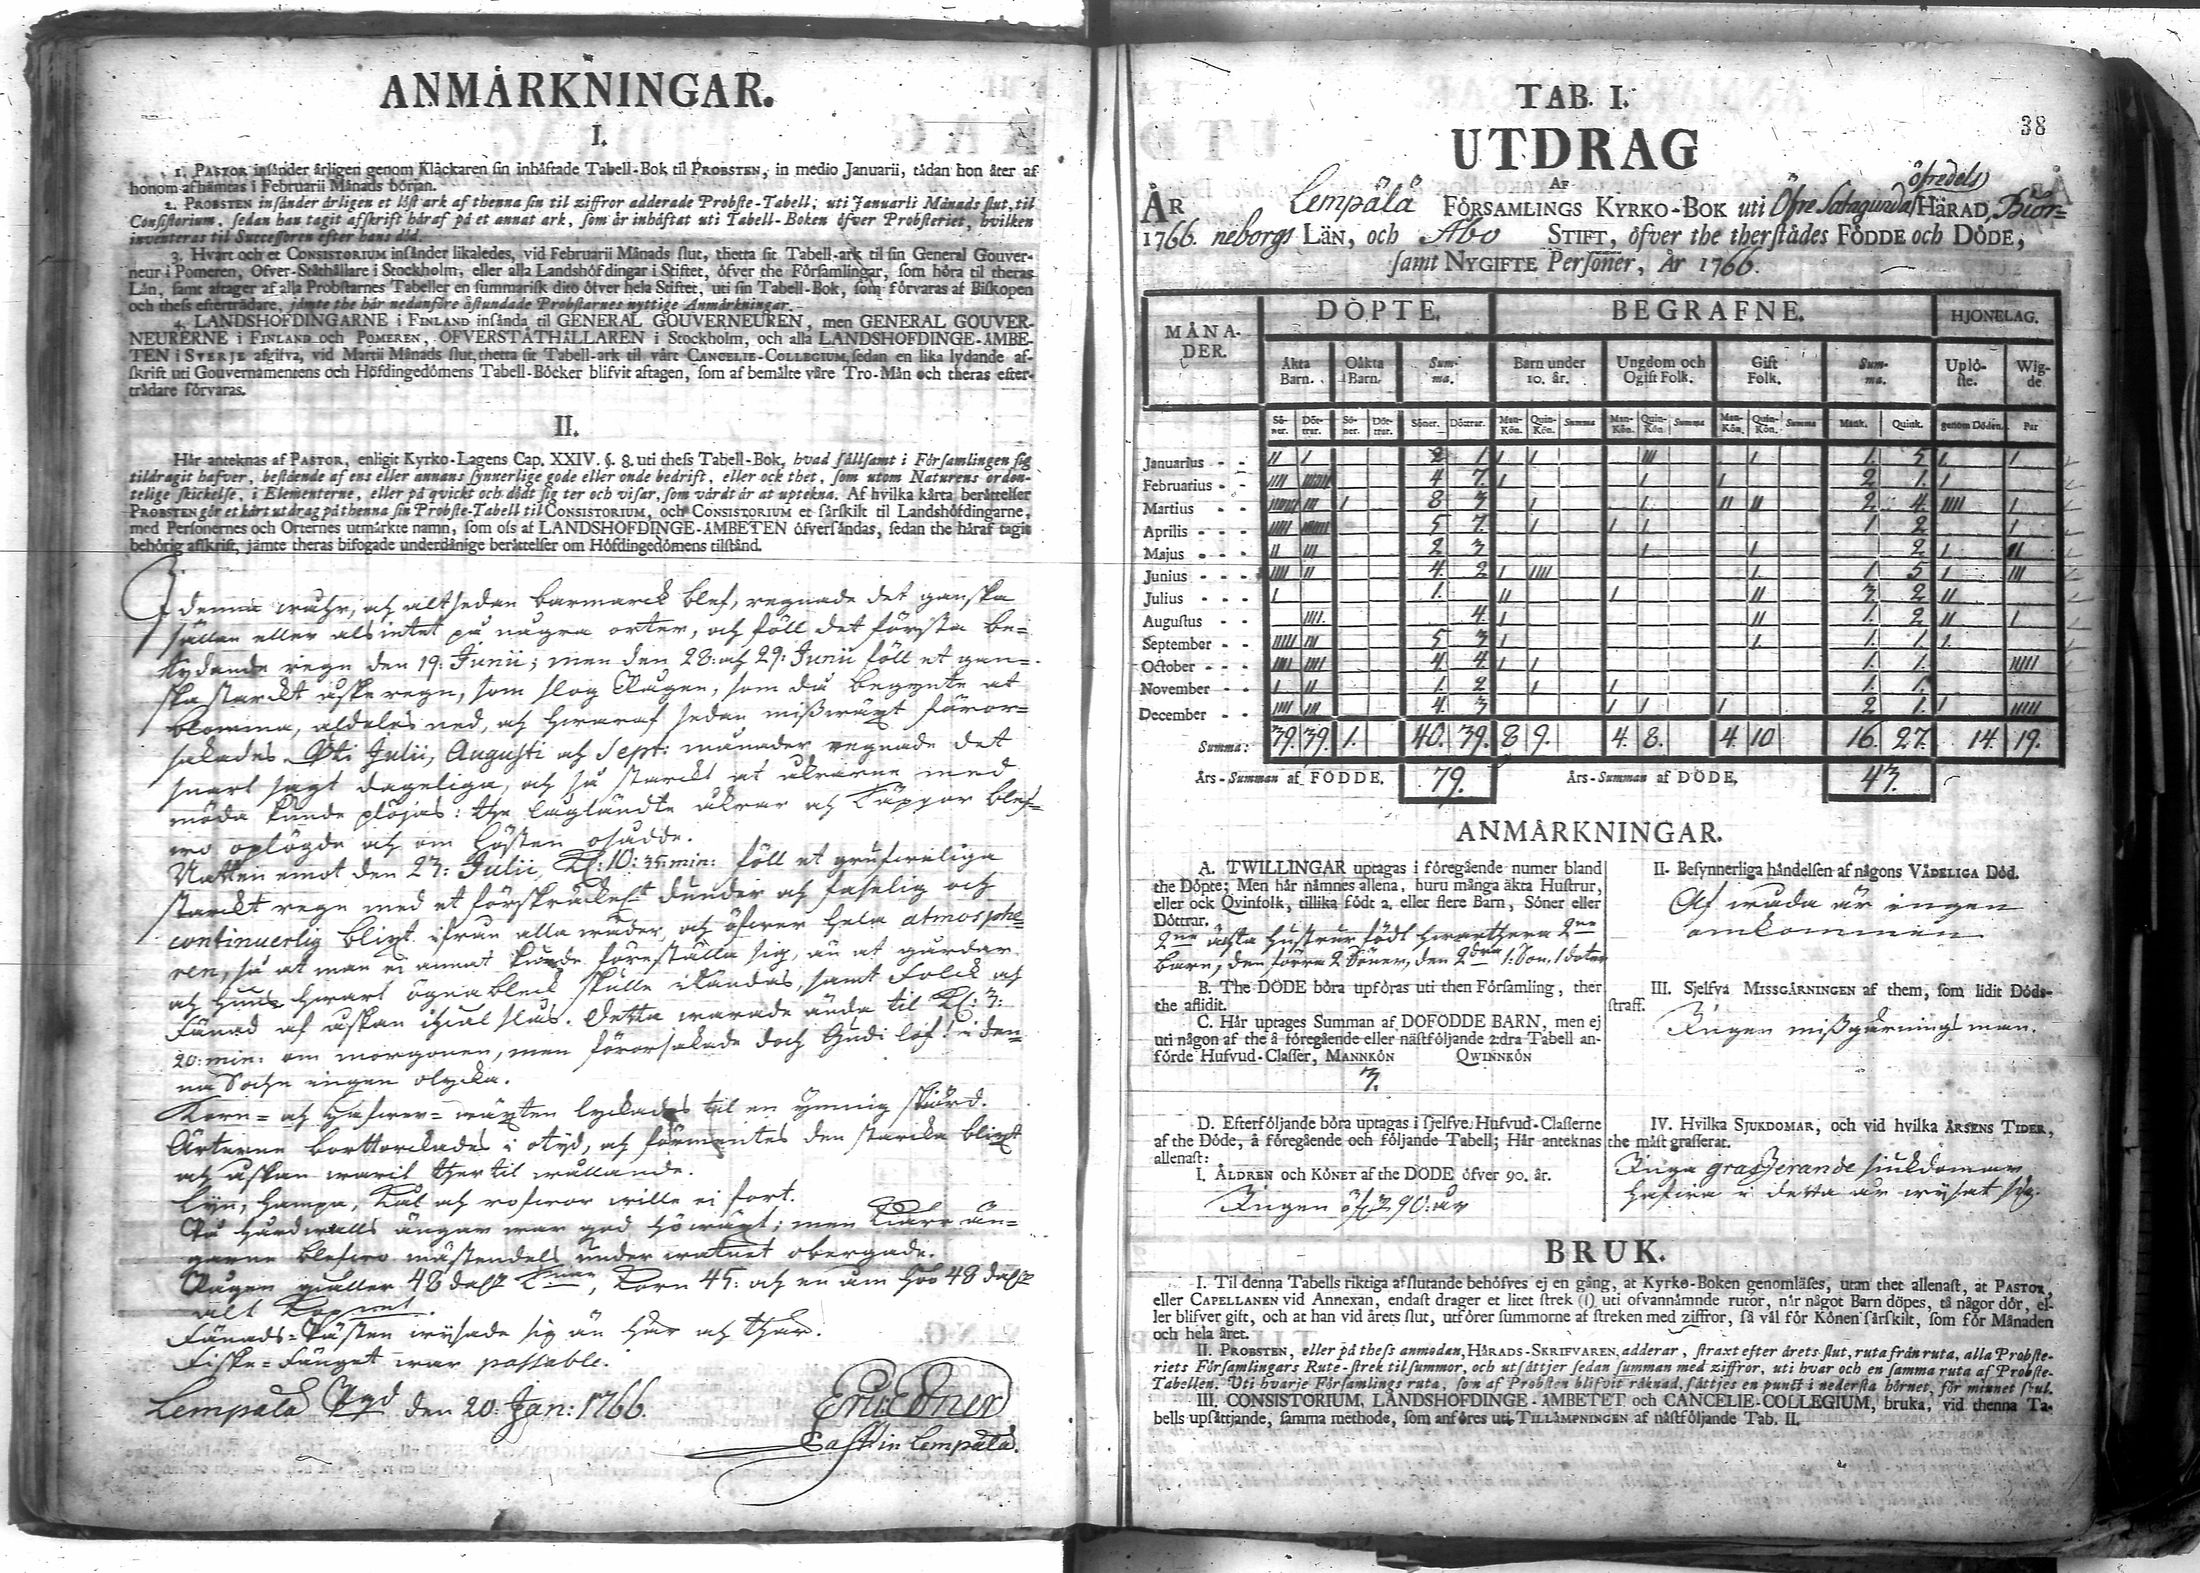 ANMÅRKNINGAR.
I.
1. PASTOR insånder årligen genom Klåckaren sin inhåftade Tabell-Bok til PROBSTEN, in medio Januarii, tådan hon åter af
honom afhåmtas i Februarii Månads början.
2. PROBSTEN insånder årligen et löst ark af thenna sin til ziffror adderade Probste-Tabell; uti Januarii Månads slut, til
Consistorium, sedan han tagit afskrift håraf på et annat ark, som år inhåftat uti Tabell-Boken öfver Probsteriet, hvilken
inventeras til Successoren efter hans död.
3. Hvart och et CONSISTORIUM insånder likaledes, vid Februarii Månads slut, thetta sit Tabell-ark til sin General Gouver-
neur i Pomeren, Ofver-Ståthållare i Stockholm, eller alla Landshöfdingar i Stiftet, öfver the Församlingar, som höra til theras
Lån, samt aftager af alla Probstarnes Tabeller en summarisk dito öfver hela Stiftet, uti sin Tabell-Bok, som förvaras af Biskopen
och thess eftertrådare, jåmte the hår nedanföre åstundade Probstarnes nyttige Anmårkningar.
4. LANDSHOFDINGARNE i FINLAND insånda til GENERAL GOUVERNEUREN, men GENERAL GOUVER-
NEURERNE i FINLAND och POMEREN, OFVERSTÅTHÅLLAREN i Stockholm, och alla LANDSHOFDINGE-ÅMBE-
TEN i SVERJE afgifva, vid Martii Månads slut, thetta sit Tabell-ark til vårt CANCELIE-COLLEGIUM, sedan en lika lydande af-
skrift uti Gouvernamentens och Höfdingedömens Tabell-Böcker blifvit aftagen, som af bemålte våre Tro-Mån och theras efter-
trådare förvaras.
II.
Hår anteknas af PASTOR, enligit Kyrko-Lagens Cap. XXIV. §. 8. uti thess Tabell-Bok, hvad sållsamt i Församlingen sig
tildragit hafver, bestående af ens eller annans synnerlige gode eller onde bedrift, eller ock thet, som utom Naturens orden-
telige skickelse, i Elementerne, eller på qvickt och dödt sig ter och visar, som vårdt år at uptekna. Af hvilka kårta beråttelser
PROBSTEN gör et kårt utdrag på thenna sin Probste-Tabell til CONSISTORIUM, och CONSISTORIUM et sårskilt til Landshöfdingarne,
med Personernes och Orternes utmårkte namn, som oss af LANDSHOFDINGE-ÅMBETEN öfversåndas, sedan the håraf tagit
behörig afskrift, jåmte theras bifogade underdånige beråttelser om Höfdingedömens tilstånd.
I denna wåhr, och altsedan barmarck blef, regnade det ganska
sällan eller alsintet på några orter, och föll det första be-
tydande regn den 19: Junii; men den 28: och 29: Junii föll et gan-
ska starckt åskeregn, som slog Rågen, som då begynte at
blomma, aldeles ned, och hwaraf sedan misswäxt föror-
sakades. Uti Julii, Augusti och Sept: månader regnade det
snart sagt dageliga, och så starckt at åkrarne med
möda kunde plöjas: the lågländte åkrar och Käppar blef-
wo oplögde och om hösten osådde.
Natten emot den 23: Julii, Kl: 10: 35 min: föll et grufweliga
starckt regn med et förskräckel:t dunder och faselig och
continuerlig blixt ifrån alla wäder, och öfwer hela atmosphe-
ren, så at man ei annat kunde föreställa sig, än at gårdar
och hus hwart ögnableck skulle itändas, samt Folck och
Fänad af åskan ihiäl slås. Detta warade ända til Kl: 3:
20: min: om morgonen, men förorsakade doch Gudi lof! i den-
na Sochn ingen olycka.
Korn= och hafwer= wäxten lyckades til en ymnig skörd.
Ärterne borttorckades i otyd, och förmentes den starcka blixt
och åskan warit ther til wållande.
Lijn, hampa, Kål och rofwor wille ei fort.
På hårdwalls ängar war god höwäxt; men Kiärr än-
garne blefwo mästendels under watnet obergade.
Rågen gäller 48 dal:r K:mnt, Korn 45: och en åm höö 48 dal:r
alt Kop:mt.
Fänads=Pästen wijsade sig än här och ther.
Fiske=Fånget war passable.
Lempälä Pgd den 20. Jan: 1766.
Eric Edner
Past: in Lempälä.
38
TAB. I.
UTDRAG
AF
öfredels
ÅR Lempälä FÖRSAMLINGS KYRKO-BOK uti Öfre Satagunda HÄRAD, Biör=
1766. neborgs LÄN, och Åbo STIFT, öfver the therstådes FÖDDE och DÖDE,
samt NYGIFTE Personer, År 1766.
MÅNA-DER. DÖPTE. BEGRAFNE. HJONELAG.
Äkta Barn. Oåkta Barn. Summa. Barn under 10. år. Ungdom och Ogift Folk. Gift Folk. Summa. Uplö-ste. Wig-de
Sö-ner. Döt-trar. Sö-ner. Döt-trar. Söner. Döttrar. Man-Kön. Quin-Kön. Summa Man-Kön. Quin-Kön Summa Man-Kön. Quin-Kön. Summa Mank. Quink. genom Döden. Par
Januarius - - II I 2 1 I I III I 1. 5. I. I
Februarius - - IIII IIIIIII 4 7. I I I 2 1. I
Martius - - IIIIIII III I 8 3 I I II II 2 4. IIII I
Aprilis - - - IIIII IIIIIII 5 7. I I I I 1 2 I
Majus - - - II III 2 3 I I 2. I II
Junius - - - IIII II 4. 2 I IIII I. 1 5 I III
Julius - - - I 1. II I II 3. 2. II
Augustus - - IIII. 4. I II 1 2 II I
September - - IIIII III 5 3 I I. 1. 1. I.
October - - - IIII IIII 4 4 I I 1. 1. IIIII
November - - I II 1. 2 I I 1. 1.
December - - IIII III 4. 3 I I I 2 1. I IIIII
Summa: 39. 39. 1. 40. 39. 8 9. 4. 8. 4. 10 16. 27. 14. 19.
Års-Summan af FÖDDE, 79. Års-Summan af DÖDE, 43.
ANMÅRKNINGAR.
A. TWILLINGAR uptagas i föregående numer bland
the Döpte; Men hår nåmnes allena, huru många åkta Hustrur,
eller ock Qvinfolk, tillika födt 2. eller flere Barn, Söner eller
Döttrar.
2:ne ächta hustrur födt hwarthera 2:ne
barn, den förra 2 Söner, den 2:dra 1. Son, 1 doter
B. The DÖDE böra upföras uti then Församling, ther
the aflidit.
C. Hår uptages Summan af DÖFÖDDE BARN, men ej
uti någon af the å föregående eller nåstföljande 2:dra Tabell an-
förde Hufvud-Classer, MANNKÖN QWINNKÖN
3.
D. Efterföljande böra uptagas i sjelfve Hufvud-Classerne
af the Döde, å föregående och följande Tabell; Hår anteknas
allenast:
I. ÅLDREN och KÖNET af the DÖDE öfver 90. år.
Ingen öf:r 90: år
II. Besynnerliga håndelsen af någons VÅDELIGA Död.
Af wåda är ingen
omkommen
III. Sjelfva MISSGÅRNINGEN af them, som lidit Döds-
straff.
Ingen missgärnings man.
IV. Hvilka SJUKDOMAR, och vid hvilka ÅRSENS TIDER,
the måst grasserat.
Inga grasserande siukdomar
hafwa i detta år wijsat sig.
BRUK.
I. Til denna Tabells riktiga afslutande behöfves ej en gång, at Kyrko-Boken genomläses, utan thet allenast, at PASTOR,
eller CAPELLANEN vid Annexan, endast drager et litet strek (I) uti ofvannåmnde rutor, når något Barn döpes, tå någor dör, el-
ler blifver gift, och at han vid årets slut, utförer summorne af streken med ziffror, så vål för Könen sårskilt, som för Månaden
och hela året.
II. PROBSTEN, eller på thess anmodan, HÅRADS-SKRIFVAREN, adderar, straxt efter årets slut, ruta från ruta, alla Probste-
riets Församlingars Rute-strek til summor, och utsåttjer sedan summan med ziffror, uti hvar och en samma ruta af Probste-
Tabellen. Uti hvarje Församlings ruta, som af Probsten blifvit råknad, såttjes en punct i nedersta hörnet, för minnet skul.
III. CONSISTORIUM, LANDSHOFDINGE-ÅMBETET och CANCELIE-COLLEGIUM, bruka, vid thenna Ta-
bells upsåttjande, samma methode, som anföres uti TILLÅMPNINGEN af nåstföljande Tab. II.